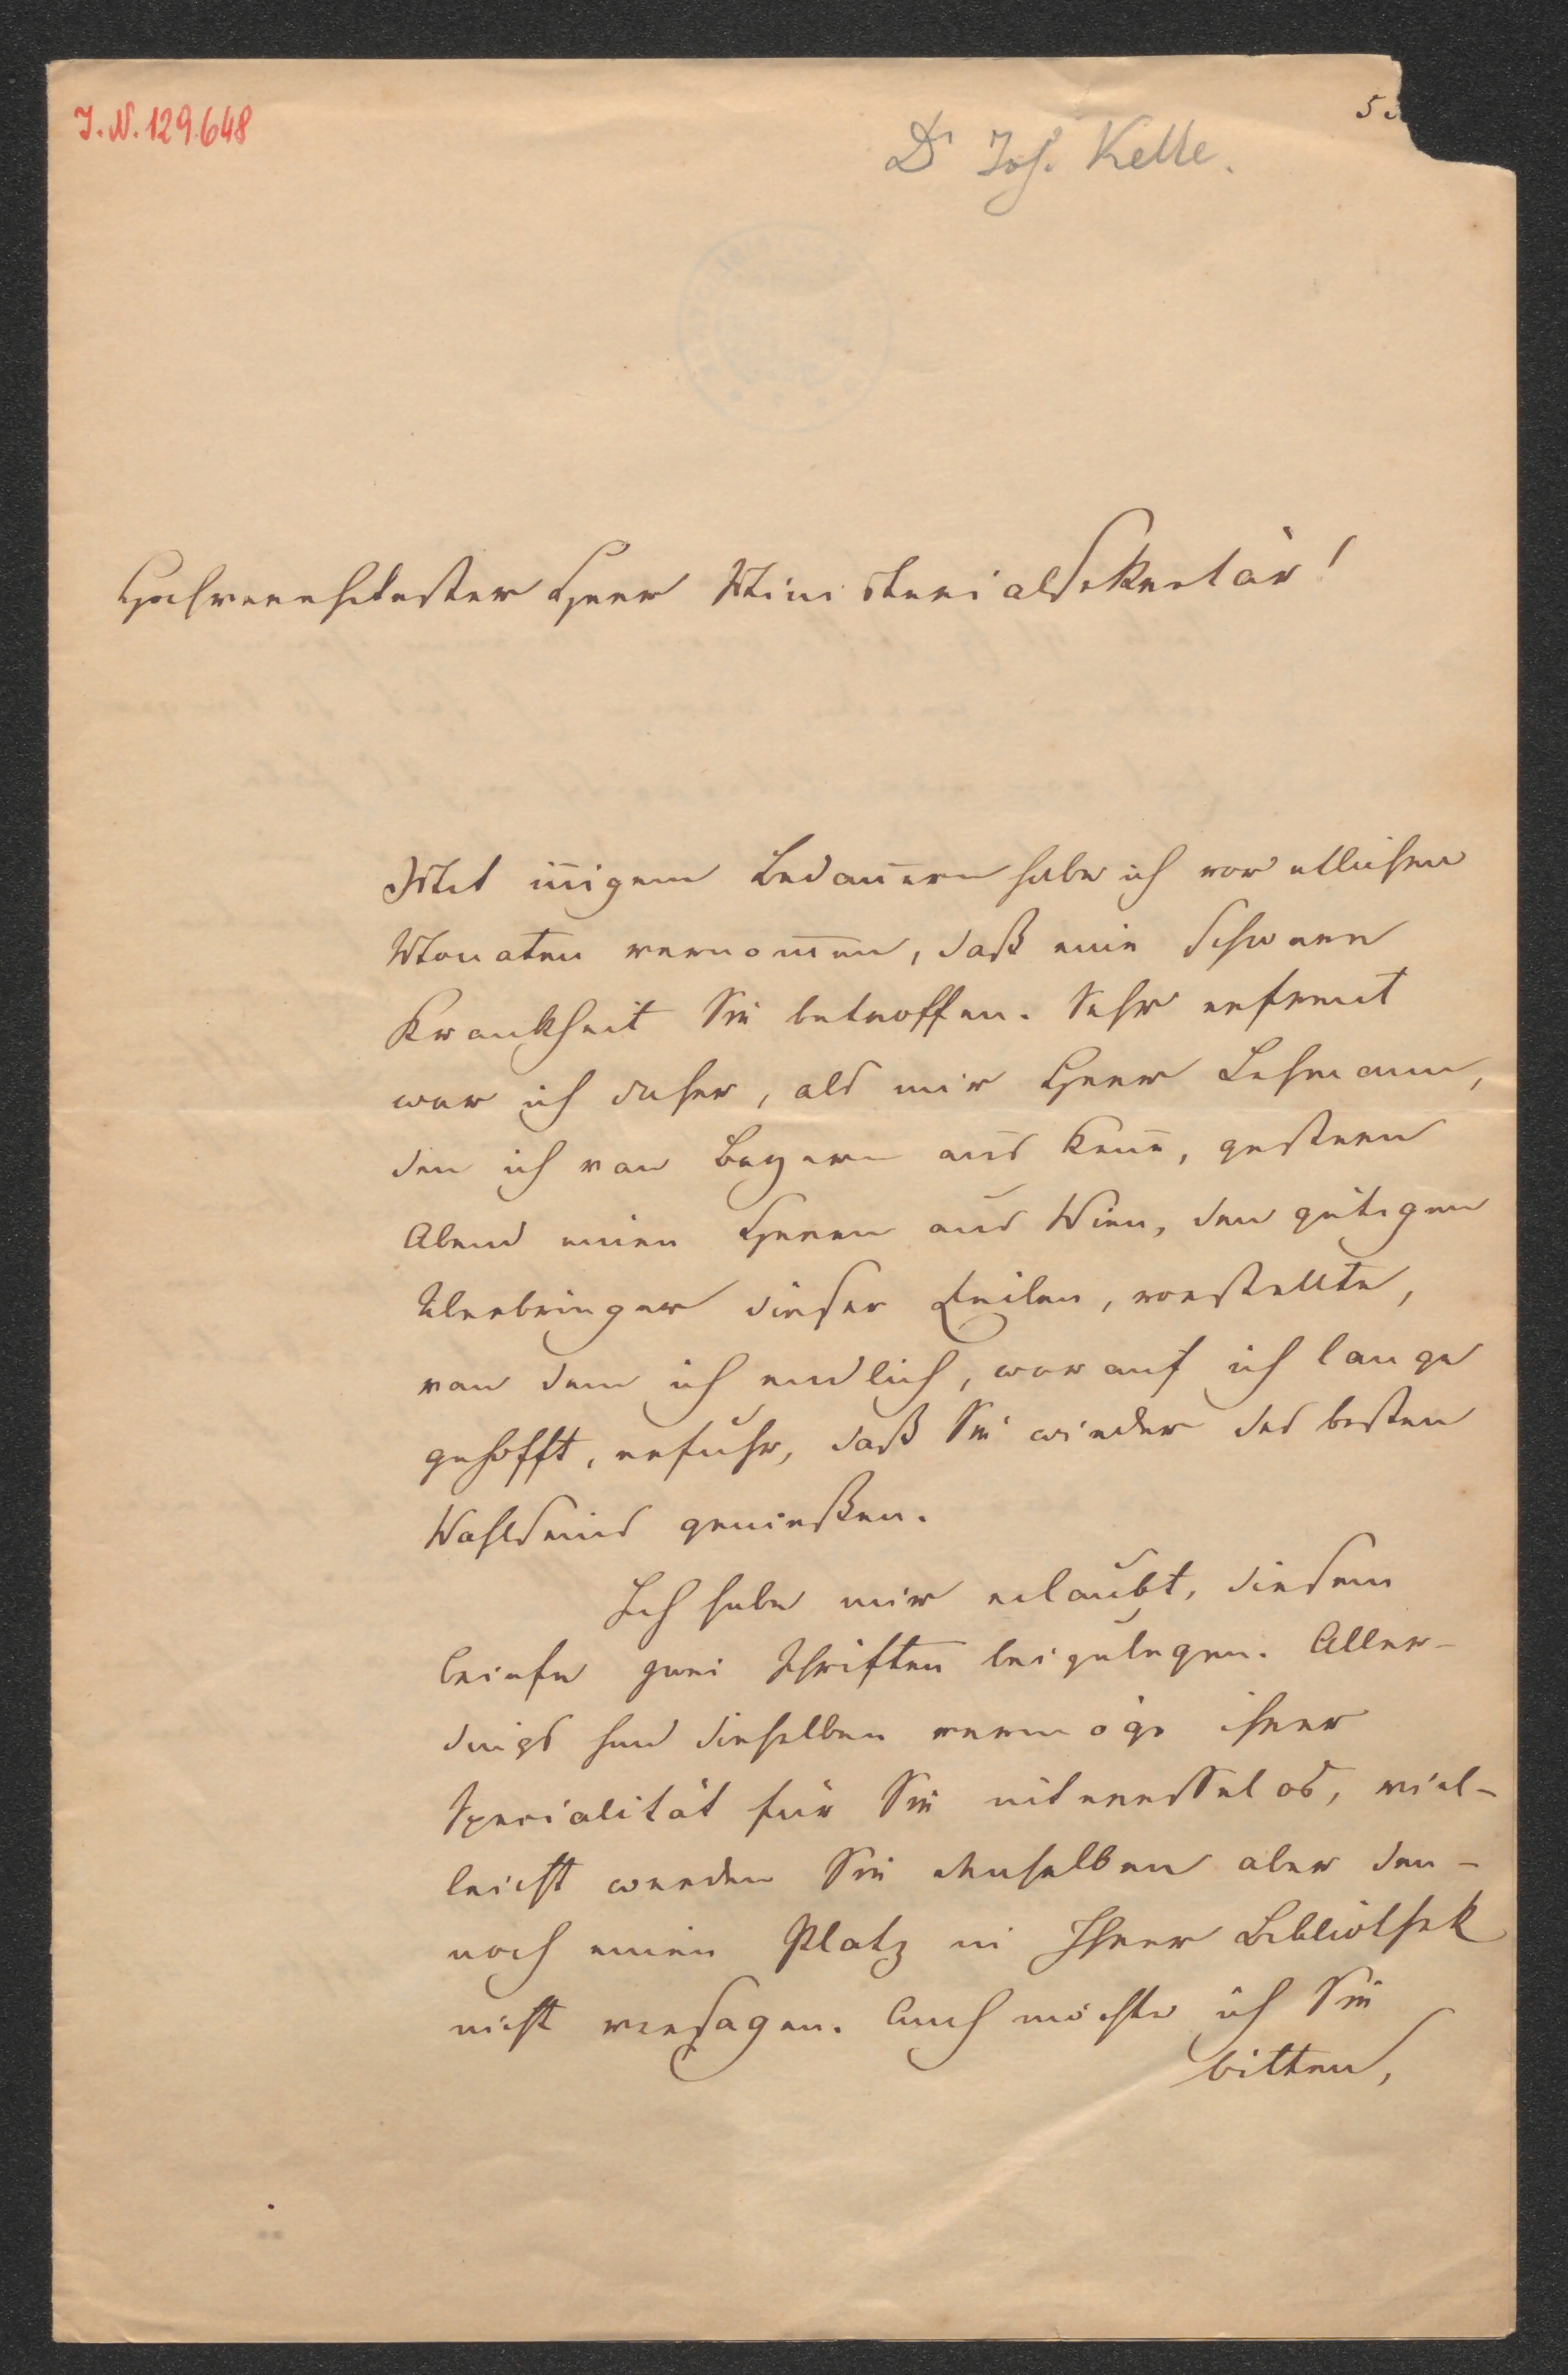 J. N. 129.648
Dr Joh. Kelle.
Hochverehrtester Herr Ministerialsekretär!
Mit iñigem Bedauern habe ich vor etlichen
Monaten vernom̅en, daß eine schwere
Krankheit Sie betroffen. Sehr erfreut
war ich daher, als mir Herr Lehmann,
den ich von Bayern aus keñe, gestern
Abend einen Herrn aus Wien, den gütigen
Überbringer dieser Zeilen, vorstellte,
von dem ich endlich, worauf ich lange
gehofft, erfuhr, daß Sie wieder des besten
Wohlseins genießen.
Ich habe mir erlaubt, diesem
Briefe zwei Schriften beizulegen. Aller-
dings sind dieselben vermöge ihrer
Specialität für Sie interesselos, viel-
leicht werden Sie denselben aber den-
noch einen Platz in Ihrer Bibliothek
nicht versagen. Auch möchte ich Sie
bitten,